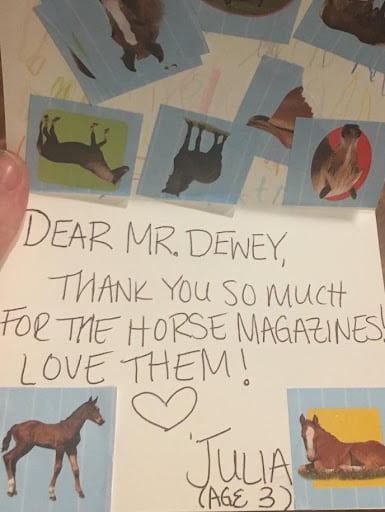 DEAR MR. DEWEY,
THANK YOU SO MUCH
FOR THE HORSE MAGAZINES!
LOVE THEM!
JULIA
(AGE 3)